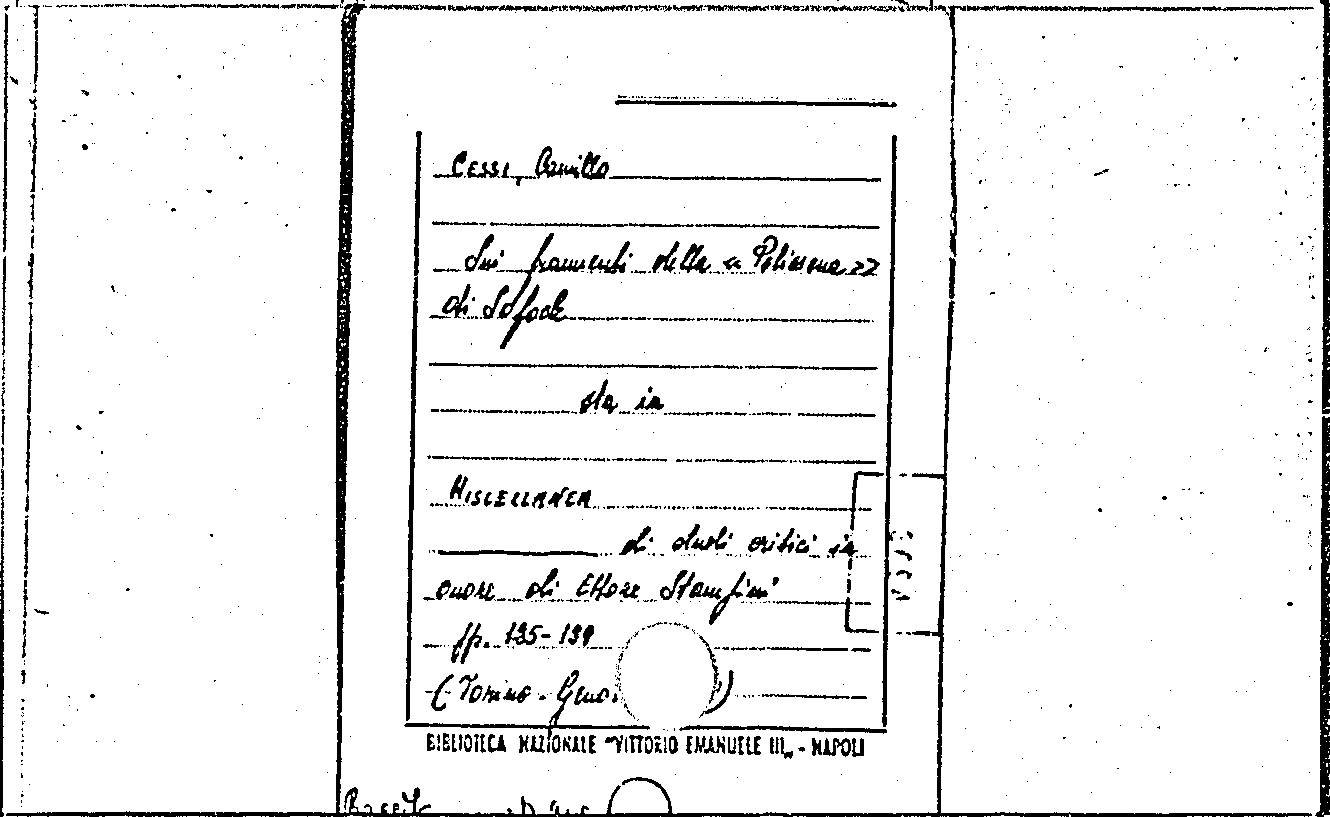 Cessi, Camillo
Sui frammenti della « Polissena »
di Sofocle
sta in
MISCELLANEA
di studi critici in
onore di Ettore Stampini
pp. 135-139
(Torino - Geno )
BIBLIOTECA NAZIONALE "VITTORIO EMANUELE III„ - NAPOLI